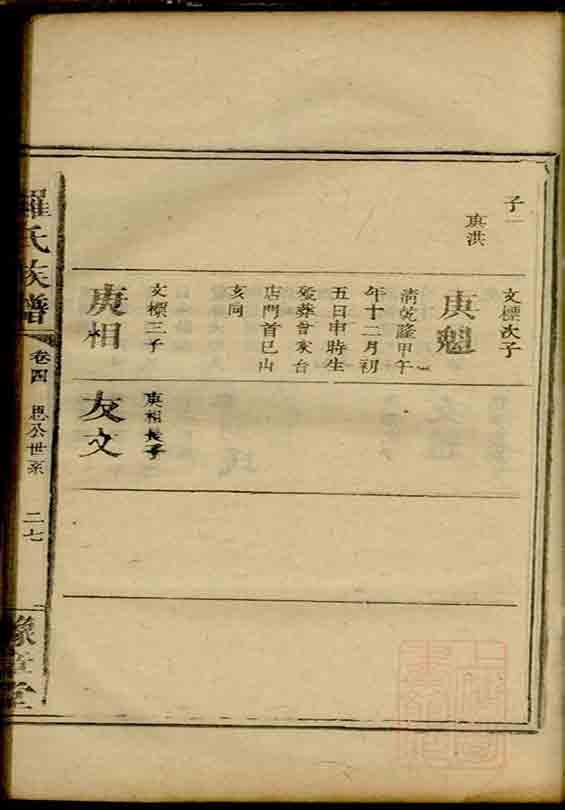 子一
庚洪
文標次子
庚魁
清乾隆甲午
年十二月初
五日申時生
歿葬曾家台
店門首巳山
亥向
文標三子
庚相
庚相長子
友文
羅氏族譜
卷四
思公世系
二七
豫章堂